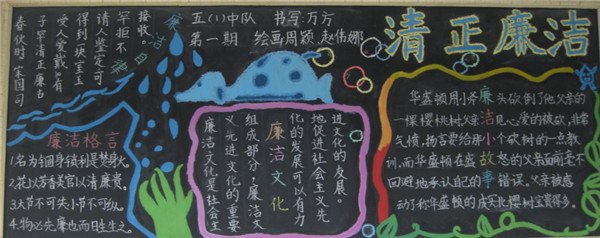 清正廉洁
五(1)中队 书写:万方
第一期 绘画周颖 赵伟娜
廉洁自律
春伙时,宋国司
子罕清正廉名
受人爱戴,有
得到一块宝玉
请人鉴定可
罕拒不
接收。
廉洁格言
1.名为锢身锁利是焚身火
2.花以芳香美官以清廉贵。
3.大节不可失小节不可纵
4.物必先腐也而后虫生之
廉洁文化是社会主
义先进文化的重要
组成部分,廉洁文
廉洁文化
化的发展可以有力
地促进社会主义先
进文化的发展。
廉洁小故事
华盛顿用小斧头砍倒了他父亲的
一棵樱桃树父亲见心爱的樱砍,非常
气愤,扬言要给那个砍树的一点教
训,而华盛顿在盛怒的父亲面前毫不
回避地承认自己的错误。父亲被感
动了称华盛顿的诚实比樱树宝贵得多。